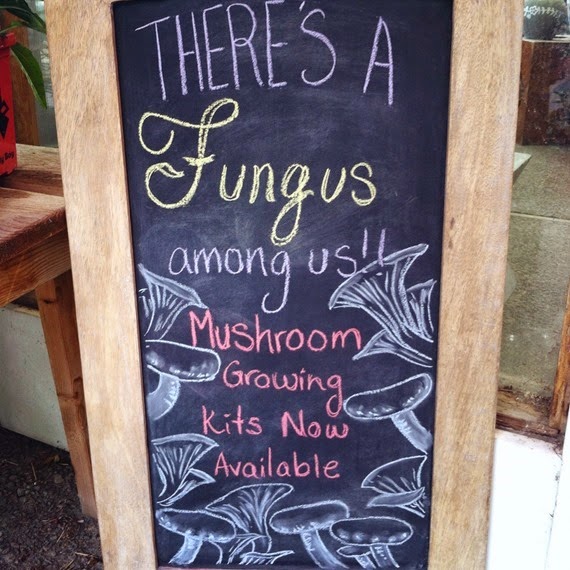 THERE'S A
Fungus
among us!!
Mushroom
Growing
Kits Now
Available